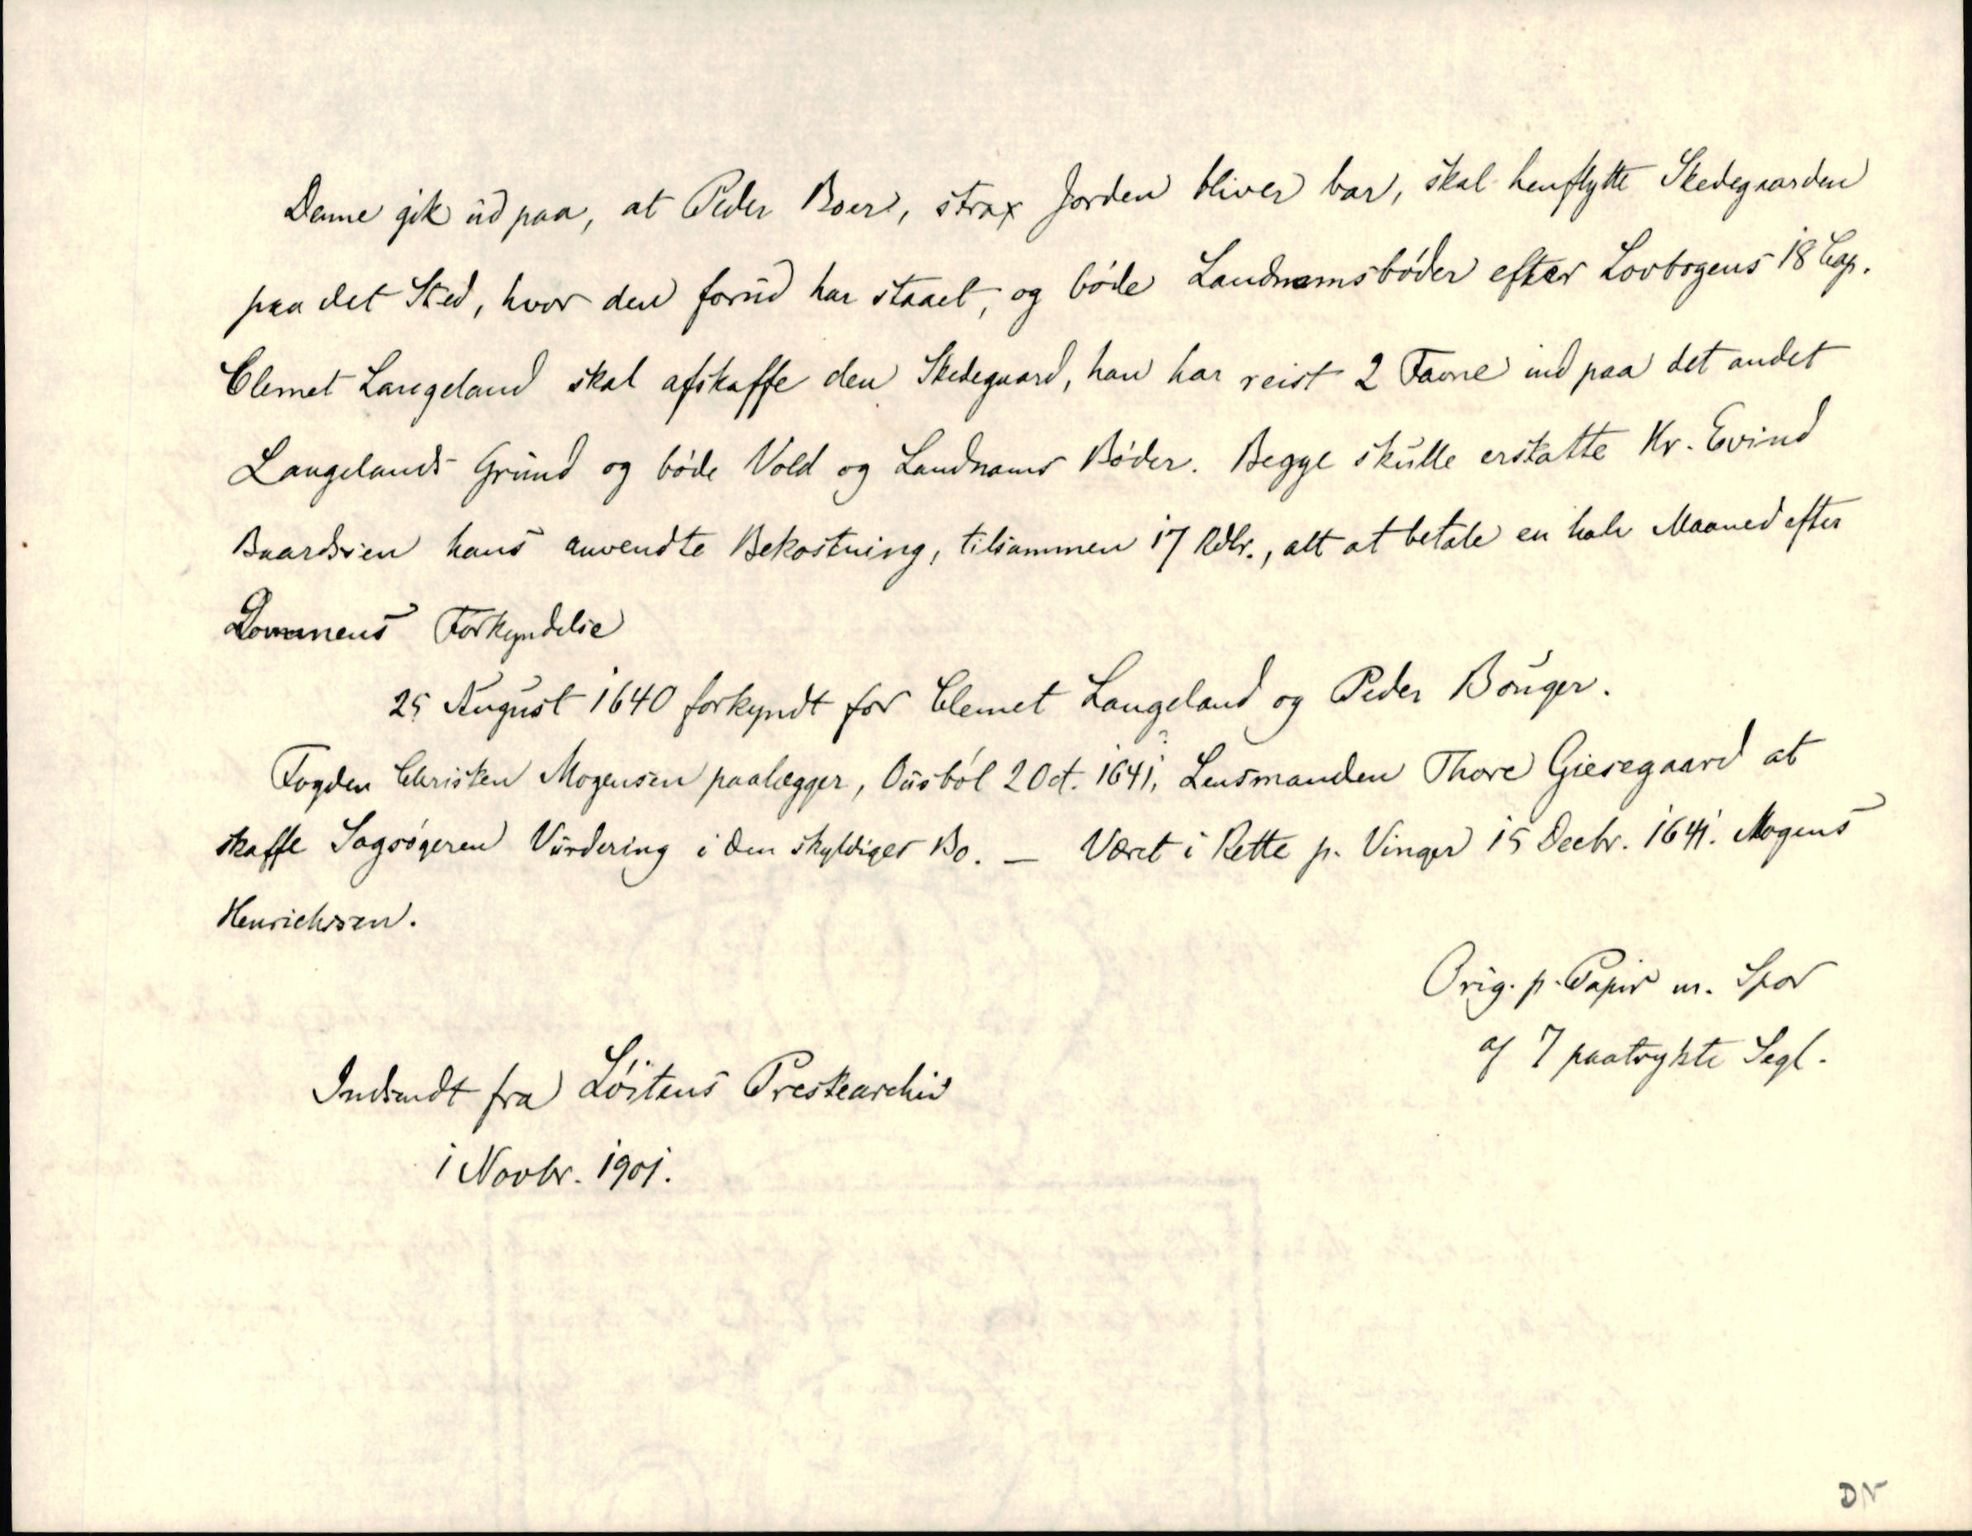 Denne gik ud paa, at Peder Boer, strax Jorden bliver bar, skal henflytte Skedegaarden
paa det Sted, hvor den forud har staaet, og bøde Landnamsbøder efter Lovbogens 18 Cap.
Clemet Langeland skal afskaffe den Skedegaard, han har reist 2 Favne ind paa det andet
Langelands Grund og bøde Vold og Landnams Bøder. Begge skulle erstatte Hr. Evind
Baardssen hans anvendte Bekostning, tilsammen 17 Rdlr., alt at betale en halv Maaned efter
Dommens Forkyndelse
25 August 1640 forkyndt for Clemet Langeland og Peder Bouger.
Fogden Christen Mogensen paalægger, Ousbøl 2 Oct. 1641, Lensmanden Thore Giesegaard at
skaffe Sagsøgeren Vurdering i den skyldiges Bo. — Været i Rette p. Vinger 15 Decbr. 1641. Mogens
Henrichssen.
Orig. p. Papir m. Spor
af 7 paatrykte Segl.
Indsendt fra Løitens Prestearchiv
i Novbr. 1901.
DN